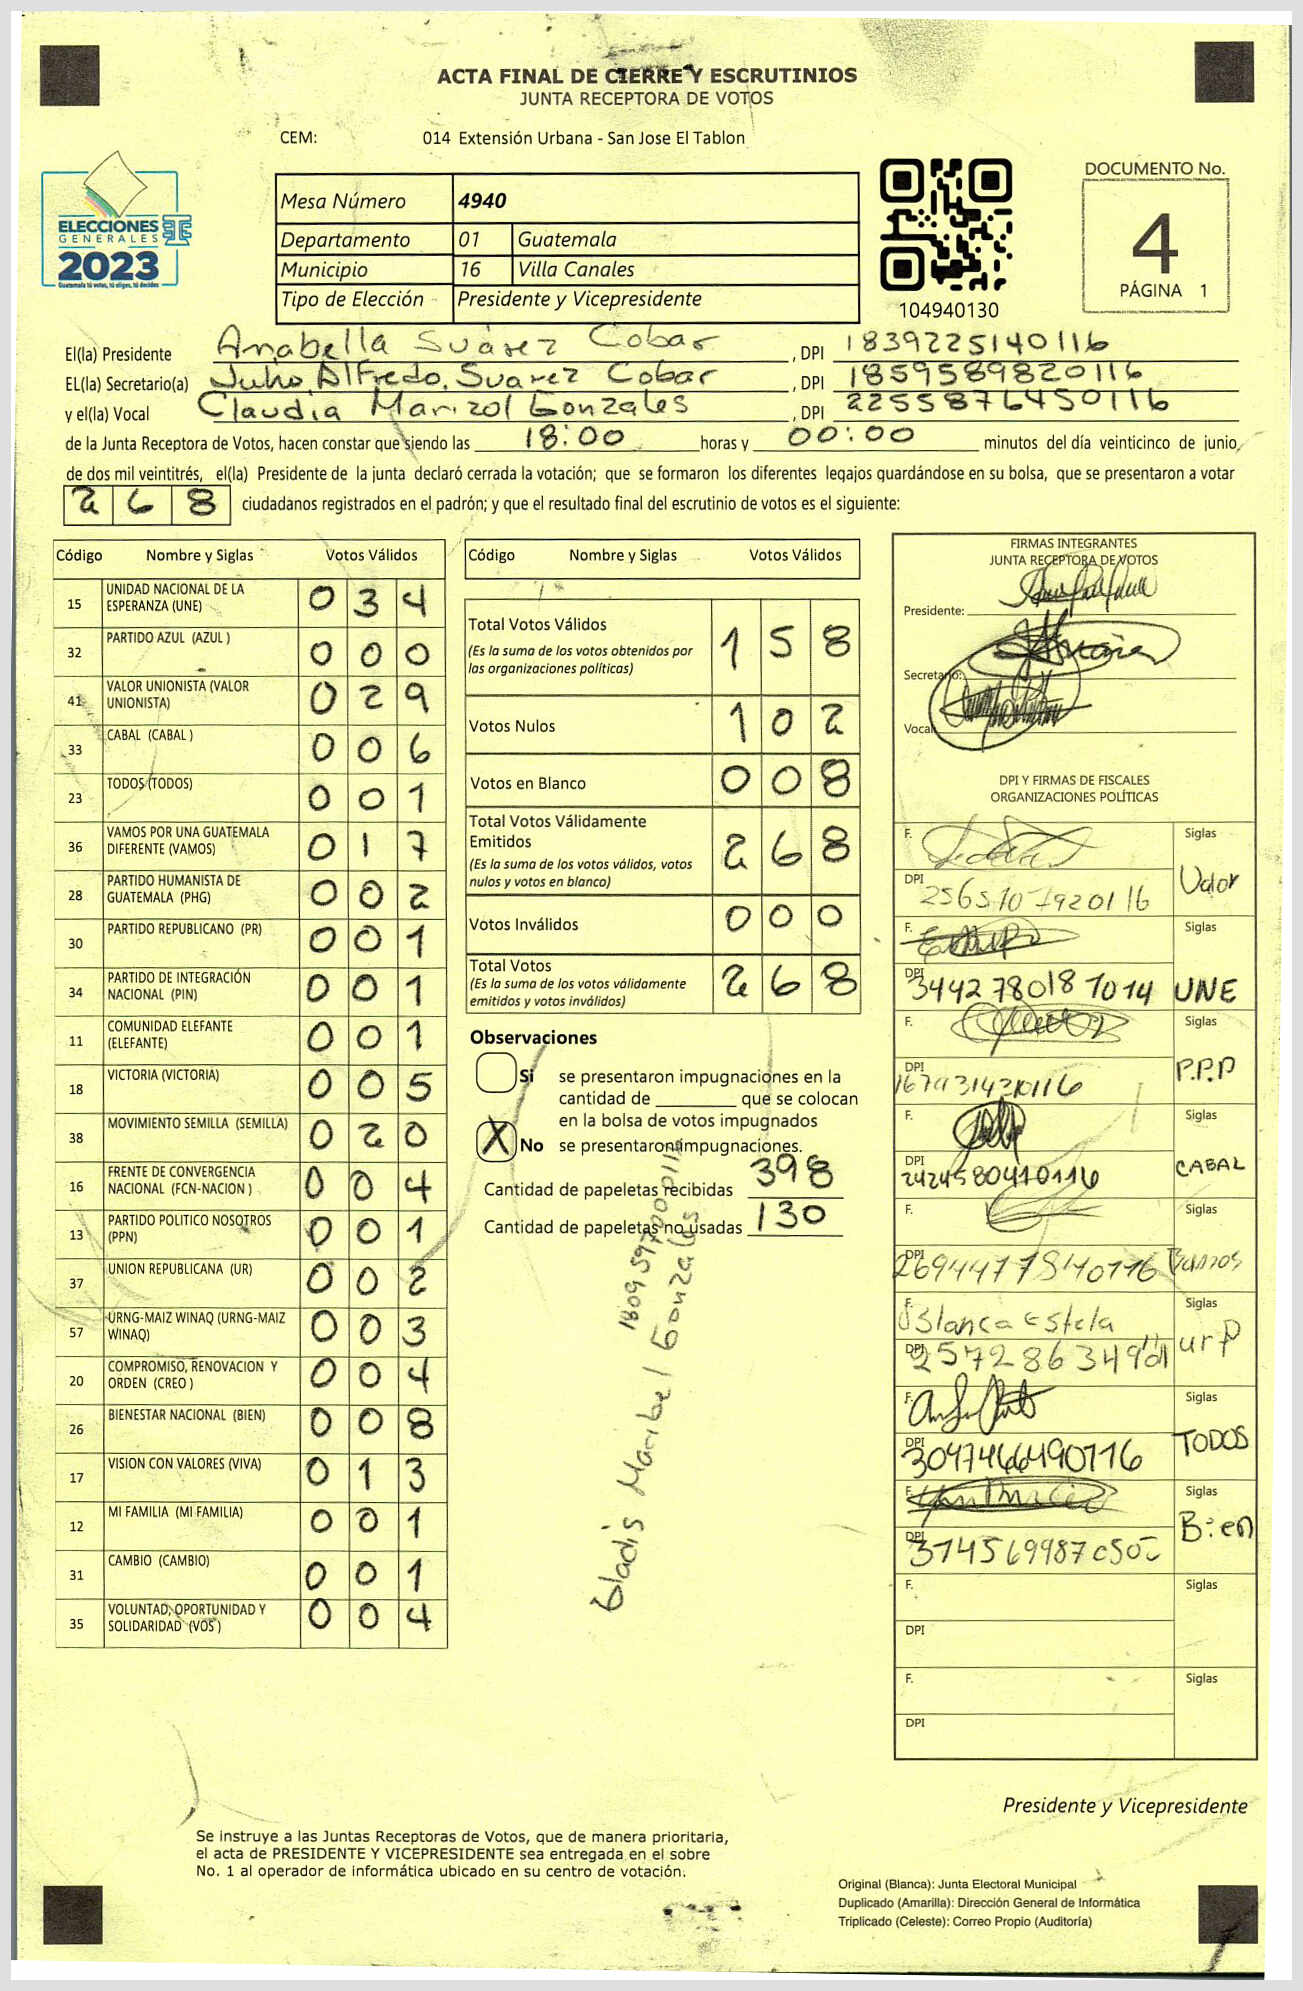 ACTA FINAL DE CIERRE Y ESCRUTINIOS
JUNTA RECEPTORA DE VOTOS
CEM: 014 Extensión Urbana - San Jose El Tablon
ELECCIONES
GENERALES
2023
Guatemala tú votas, tú eliges, tú decides
Mesa Número 4940
Departamento 01 Guatemala
Municipio 16 Villa Canales
Tipo de Elección Presidente y Vicepresidente
104940130
DOCUMENTO No.
4
PÁGINA 1
El(la) Presidente Anabella Suárez Cobar, DPI 1839225140116
EL(la) Secretario(a) Julio Alfredo, Suarez Cobar, DPI 1859589820116
y el(la) Vocal Claudia Marizol Gonzales, DPI 2255876450116
de la Junta Receptora de Votos, hacen constar que siendo las 18:00 horas y 00:00 minutos del día veinticinco de junio,
de dos mil veintitrés, el(la) Presidente de la junta declaró cerrada la votación; que se formaron los diferentes legajos guardándose en su bolsa, que se presentaron a votar
268 ciudadanos registrados en el padrón; y que el resultado final del escrutinio de votos es el siguiente:
Código Nombre y Siglas Votos Válidos
15 UNIDAD NACIONAL DE LA ESPERANZA (UNE) 034
32 PARTIDO AZUL (AZUL ) 000
41 VALOR UNIONISTA (VALOR UNIONISTA) 029
33 CABAL (CABAL ) 006
23 TODOS (TODOS) 001
36 VAMOS POR UNA GUATEMALA DIFERENTE (VAMOS) 017
28 PARTIDO HUMANISTA DE GUATEMALA (PHG) 002
30 PARTIDO REPUBLICANO (PR) 001
34 PARTIDO DE INTEGRACIÓN NACIONAL (PIN) 001
11 COMUNIDAD ELEFANTE (ELEFANTE) 001
18 VICTORIA (VICTORIA) 005
38 MOVIMIENTO SEMILLA (SEMILLA) 020
16 FRENTE DE CONVERGENCIA NACIONAL (FCN-NACION ) 004
13 PARTIDO POLITICO NOSOTROS (PPN) 001
37 UNION REPUBLICANA (UR) 002
57 URNG-MAIZ WINAQ (URNG-MAIZ WINAQ) 003
20 COMPROMISO, RENOVACION Y ORDEN (CREO ) 004
26 BIENESTAR NACIONAL (BIEN) 008
17 VISION CON VALORES (VIVA) 013
12 MI FAMILIA (MI FAMILIA) 001
31 CAMBIO (CAMBIO) 001
35 VOLUNTAD, OPORTUNIDAD Y SOLIDARIDAD (VOS ) 004
Código Nombre y Siglas Votos Válidos
Total Votos Válidos 158
(Es la suma de los votos obtenidos por
las organizaciones políticas)
Votos Nulos 102
Votos en Blanco 008
Total Votos Válidamente
Emitidos 268
(Es la suma de los votos válidos, votos
nulos y votos en blanco)
Votos Inválidos 000
Total Votos 268
(Es la suma de los votos válidamente
emitidos y votos inválidos)
Observaciones
Si se presentaron impugnaciones en la
cantidad de ________ que se colocan
en la bolsa de votos impugnados
X No se presentaron impugnaciones.
Cantidad de papeletas recibidas 398
Cantidad de papeletas no usadas 130
Gladis Maribel Gonzales
FIRMAS INTEGRANTES
JUNTA RECEPTORA DE VOTOS
Presidente:
Secretario:
Vocal
DPI Y FIRMAS DE FISCALES
ORGANIZACIONES POLÍTICAS
F. Siglas
DPI Valor
F. Siglas
DPI 3442780181014 UNE
F. Siglas
DPI P.P.P
F. Siglas
DPI 2424580410116 CABAL
F. Siglas
DPI
F. Blanca Estela Siglas
DPI urp
F. Siglas
DPI TODOS
F. Siglas
DPI Bien
F. Siglas
DPI
F. Siglas
DPI
Presidente y Vicepresidente
Se instruye a las Juntas Receptoras de Votos, que de manera prioritaria,
el acta de PRESIDENTE Y VICEPRESIDENTE sea entregada en el sobre
No. 1 al operador de informática ubicado en su centro de votación.
Original (Blanca): Junta Electoral Municipal
Duplicado (Amarilla): Dirección General de Informática
Triplicado (Celeste): Correo Propio (Auditoría)